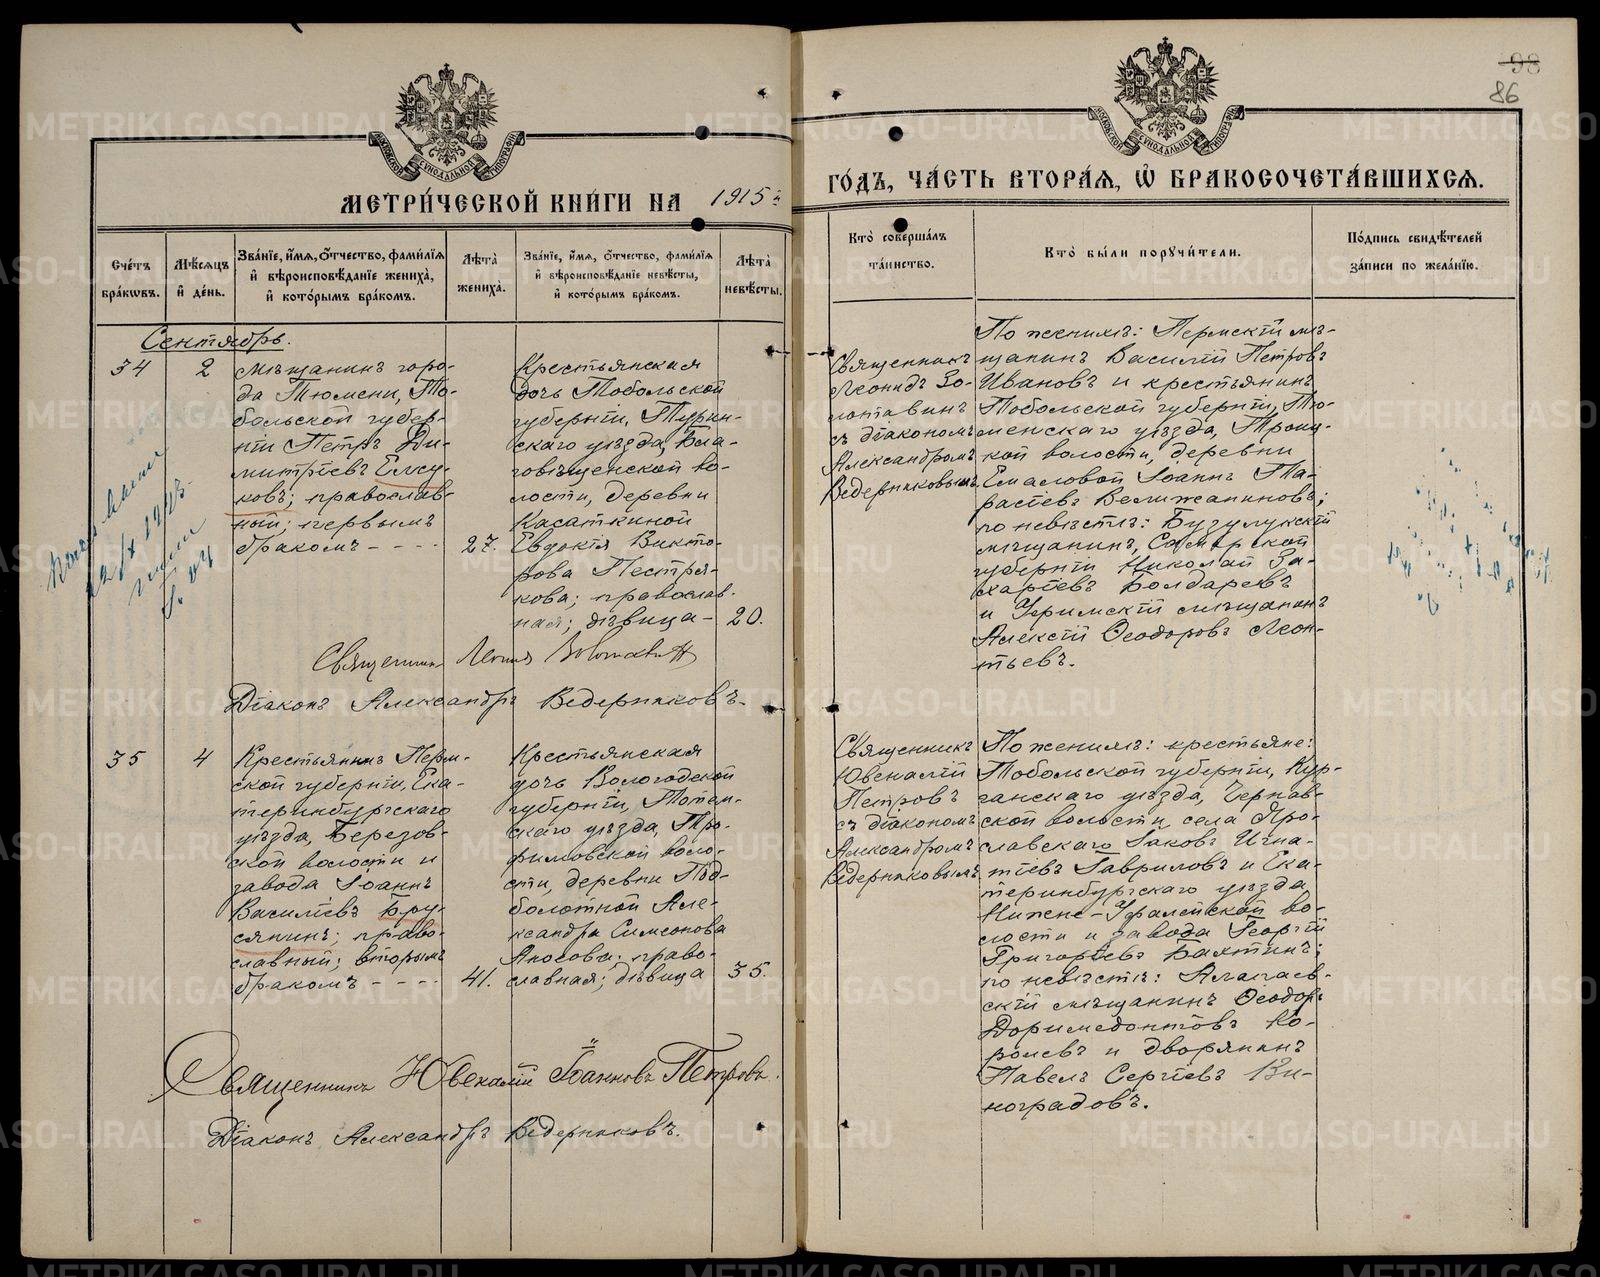 98
86
МЕТРИ́ЧЕСКОЙ КНИ́ГИ НА 1915 й
ГО́ДЪ, ЧА́СТЬ ВТОРА́Я, Ѡ БРАКОСОЧЕТА́ВШИХСЯ.
Сче́тъ бра́кѡвъ.
Мѣ́сяцъ и де́нь.
Зва́нїе, и́мя, о́тчество, фами́лїя и вѣроисповѣ́данїе жениха̀, и кото́рымъ бра́комъ.
Лѣ́та жениха̀.
Зва́нїе, и́мя, о́тчество, фами́лїя и вѣроисповѣ́данїе невѣ́сты, и кото́рымъ бра́комъ.
Лѣ́та невѣ́сты.
Кто̀ соверша́лъ та́инство.
Кто̀ бы́ли порꙋчи́тели.
По́дпись свидѣ́телей за́писи по жела́нїю.
Сентябрь.
34
2
мѣщанинъ горо-
да Тюмени, То-
больской губер-
нiи Петръ Ди-
митрiевъ Елсу-
ковъ; православ-
ный; первымъ
бракомъ - - - -
27.
Крестьянская
дочь Тобольской
губернiи, Турин-
скаго уѣзда, Бла-
говѣщенской во-
лости, деревни
Касаткиной
Евдокiя Викто-
рова Пестря-
кова; православ-
ная; дѣвица -
20.
Священникъ
Леонидъ Зо-
лотавинъ
съ дiакономъ
Александромъ
Ведерниковымъ.
По женихѣ: Пермскiй мѣ-
щанинъ Василiй Петровъ
Ивановъ и крестьянинъ
Тобольской губернiи, Тю-
менскаго уѣзда, Троиц-
кой волости, деревни
Емаловой Iоаннъ Та-
расiевъ Велижаниновъ;
по невѣстѣ: Бузулукскiй
мѣщанинъ, Самарской
губернiи Николай За-
харiевъ Болдаревъ
и Уфимскiй мѣщанинъ
Алексiй Ѳеодоровъ Леон-
тьевъ.
Священникъ Леонидъ Золотавинъ
Дiаконъ Александръ Ведерниковъ.
35
4
Крестьянинъ Перм-
ской губернiи, Ека-
теринбургскаго
уѣзда, Березов-
ской волости и
завода Iоаннъ
Василiевъ Бру-
сянинъ; право-
славный; вторымъ
бракомъ - - - -
41.
Крестьянская
дочь Вологодской
губернiи, Тотем-
скаго уѣзда, Тро-
фимовской воло-
сти, деревни Под-
болотной Але-
ксандра Симеонова
Аносова; право-
славная; дѣвица
35.
Священникъ
Ювеналiй
Петровъ
съ дiакономъ
Александромъ
Ведерниковымъ
По женихѣ: крестьяне:
Тобольской губернiи, Кур-
ганскаго уѣзда, Чернав-
ской волости, села Яро-
славскаго Iаковъ Игна-
тiевъ Гавриловъ и Ека-
теринбургскаго уѣзда
Нижне-Уфалейской во-
лости и завода Георгiй
Григорiевъ Бахтинъ;
по невѣстѣ: Алапаев-
скiй мѣщанинъ Ѳеодоръ
Доримедонтовъ Ко-
ролевъ и дворянинъ
Павелъ Сергiевъ Ви-
ноградовъ.
Священникъ Ювеналiй Iоанновъ Петровъ.
Дiаконъ Александръ Ведерниковъ.
METRIKI.GASO-URAL.RU